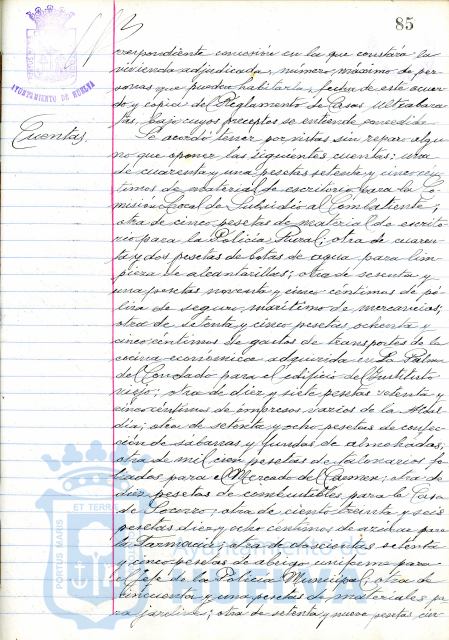 85
AYUNTAMIENTO DE HUELVA
Cuentas.
correspondiente concesión en la que constára la
vivienda adjudicada, número máximo de per-
sonas que pueden habitarla, fecha de este acuer-
do y copia del Reglamento de Casas Ultrabara-
tas, bajo cuyos preceptos se entiende concedida.
Se acordó tener por vistas sin reparo algu-
no que oponer las siguientes cuentas: una
de cuarenta y una pesetas setenta y cinco cén-
timos de material de escritorio para la Co-
misión Local de Subsidio al Combatiente;
otra de cinco pesetas de material de escrito-
rio para la Policía Rural; otra de cuaren-
ta y dos pesetas de botas de agua para lim-
pieza de alcantarillas; otra de sesenta y
una pesetas noventa y cinco céntimos de pó-
liza de seguro marítimo de mercancías;
otra de setenta y cinco pesetas ochenta y
cinco céntimos de gastos de transportes de la
cocina económica adquirida en La Palma
del Condado para el edificio del Instituto
viejo; otra de diez y siete pesetas setenta y
cinco céntimos de impresos varios de la Alcal-
día; otra de setenta y ocho pesetas de confec-
ción de sábanas y fundas de almohadas;
otra de mil cien pesetas de talonarios fo-
liados para el Mercado del Carmen; otra de
diez pesetas de combustibles para la Casa
de Socorro; otra de ciento treinta y seis
pesetas diez y ocho céntimos de azúcar para
la Farmacia; otra de setenta
y cinco pesetas de abrigo uniforme para
el Jefe de la Policía Municipal; otra de
cincuenta y una pesetas de materiales pa-
ra jardines; otra de setenta y nueve pesetas cin-
PORTUS MARIS ET TERRAE
Ayuntamiento de
HUELVA